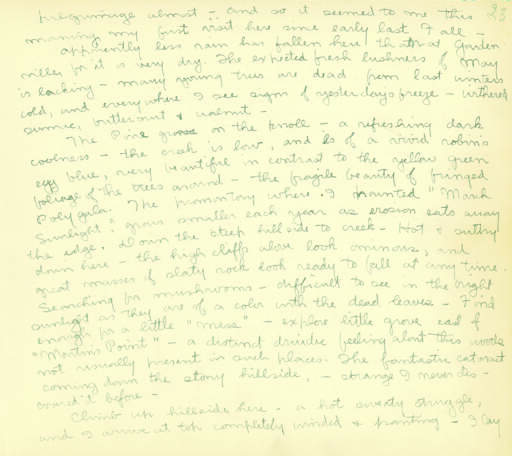 pregrimage almost - and so it seemed to me this 23
morning my first visit here since early last Fall -
Apparently less rain has fallen here than at Garden
ville, for it is very dry. The expected fresh lushness of May
is lacking - many young trees are dead from last winters
cold, and everywhere I see signs of yesterdays freeze - withered
sumac, butternut & walnut -
The Pine grove on the knoll - a refreshing dark
coolness - the creek is low, and is of a vivid robin's
egg blue, very beautiful in contrast to the yellow green
foliage of the trees around - the fragile beauty of fringed
Polygala. The promontory where I painted "March
Sunlight" grows smaller each year as erosion eats away
the edge. Down the steep hillside to creek - Hot & sultry
down here - the high cliffs above look ominous, and
great masses of slaty rock look ready to fall at any time.
Searching for mushrooms - difficult to see in the bright
sunlight as they are of a color with the dead leaves - Find
enough for a little "mess" - explore little grove east of
"Martins Point" - a distinct druidic feeling about this woods
not usually present in such places. The fantastic cataract
coming down the stony hillside, - strange I never dis-
cover'd it before -
Climb up hillside here - a hot sweaty struggle,
and I arrive at top completely winded & panting - I lay